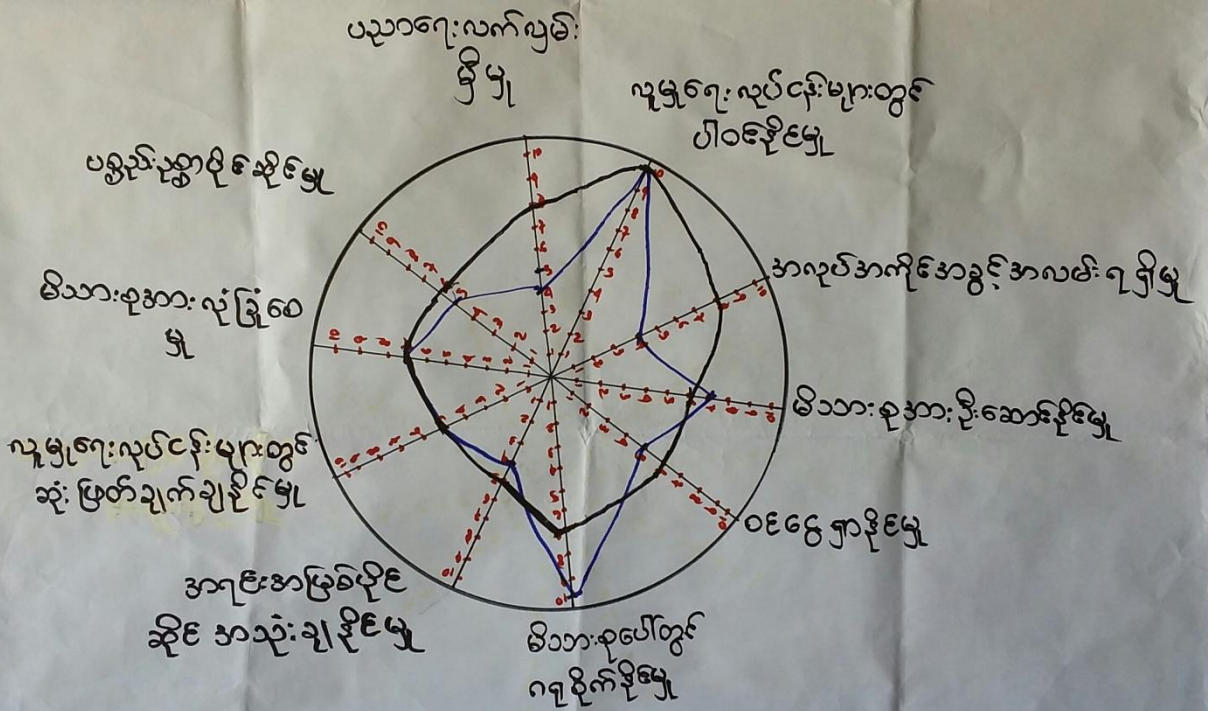 ပညာရေးလက်လှမ်း
မှီမှု
လူမှုရေးလုပ်ငန်းများတွင်
ပါဝင်နိုင်မှု
အလုပ်အကိုင်အခွင့်အလမ်းရရှိမှု
မိသားစုအားဦးဆောင်နိုင်မှု
ဝင်ငွေရှာနိုင်မှု
မိသားစုပေါ်တွင်
ဂရုစိုက်နိုင်မှု
အရင်းအမြစ်ပိုင်
ဆိုင် အသုံးချနိုင်မှု
လူမှုရေးလုပ်ငန်းများတွင်
ဆုံးဖြတ်ချက်ချနိုင်မှု
မိသားစုအားလုံခြုံစေ
မှု
ပစ္စည်းဥစ္စာပိုင်ဆိုင်မှု